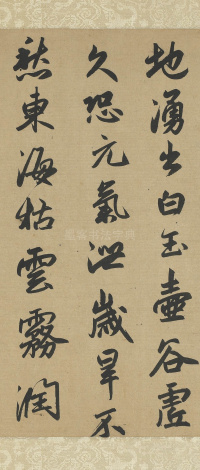 地湧出白玉壺谷虛
久恐元氣泄歲旱不
愁東海枯雲霧潤